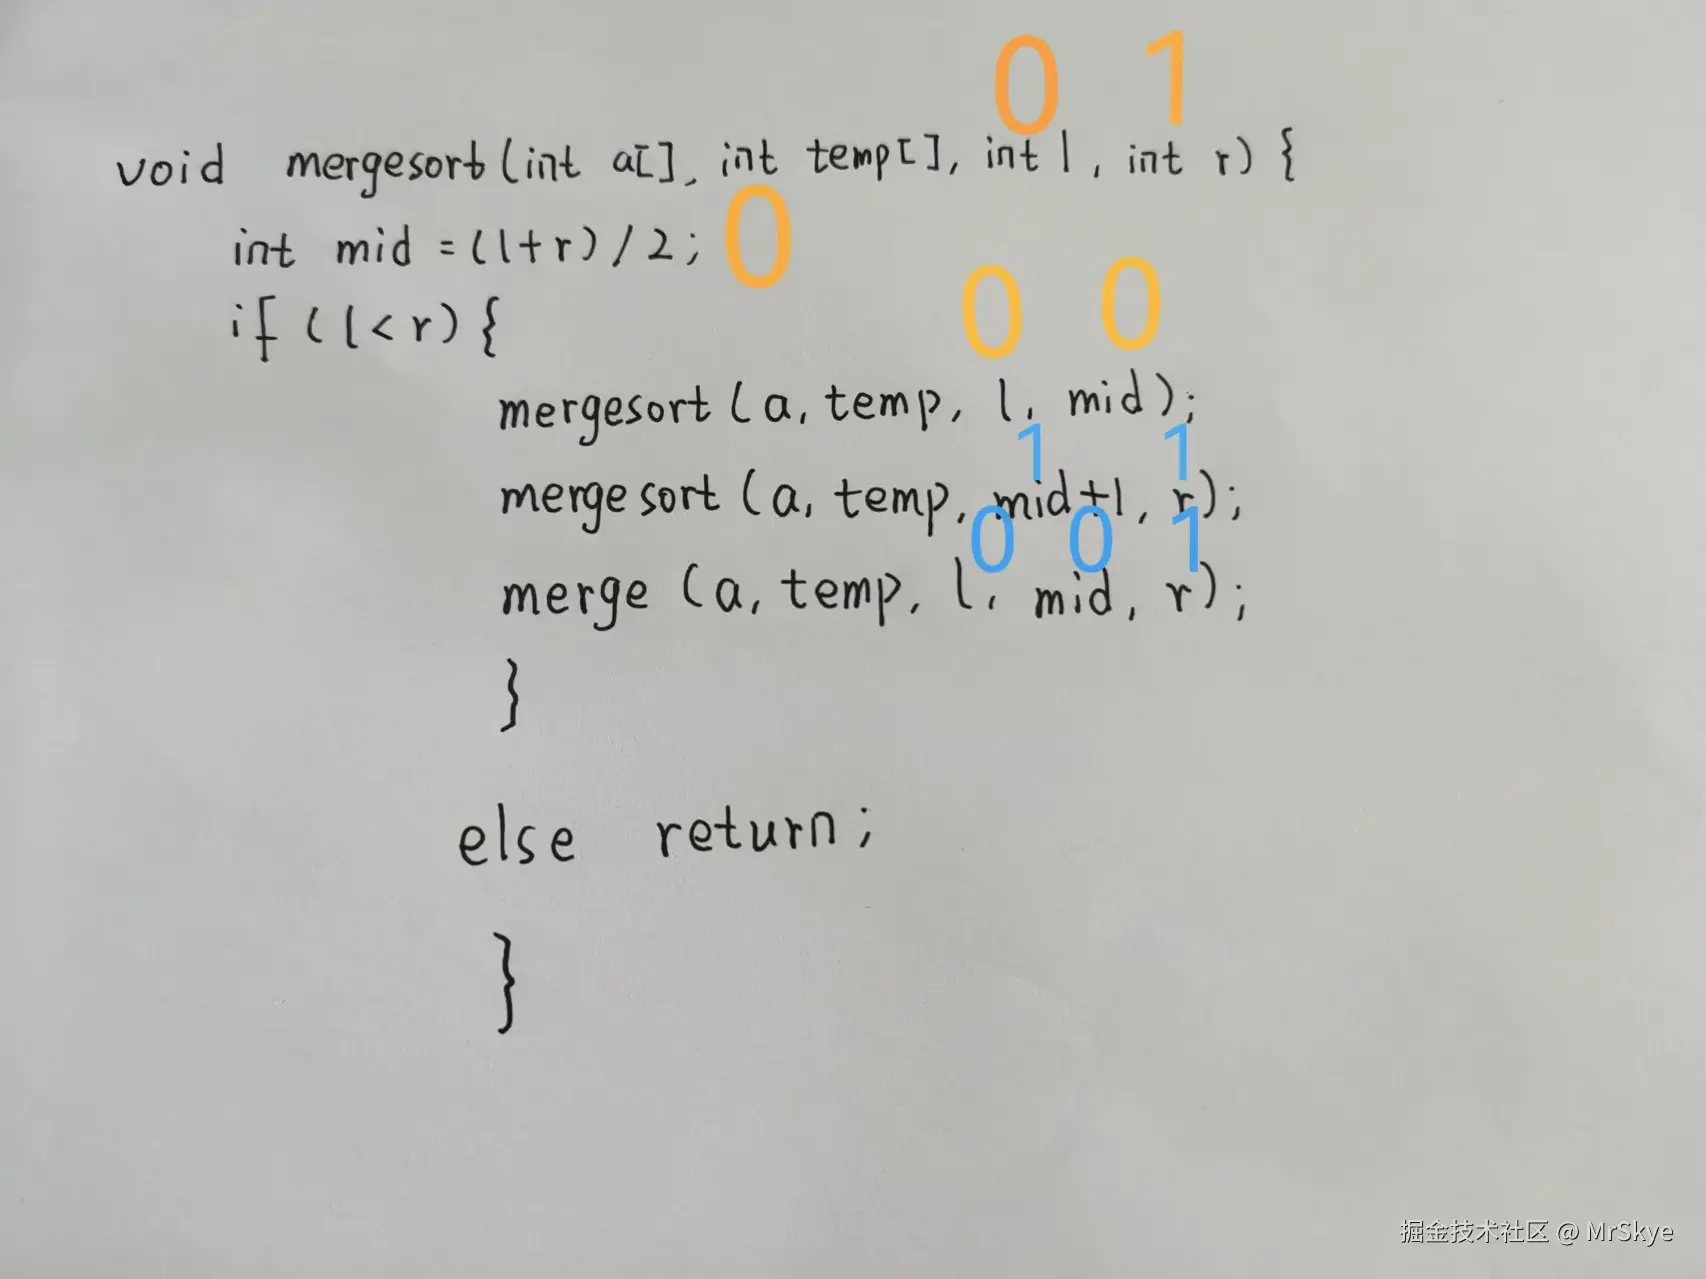 0 1
void mergesort(int a[], int temp[], int l, int r) {
int mid = (l+r)/2; 0
0 0
if (l<r) {
mergesort (a, temp, l, mid);
1 1
mergesort (a, temp, mid+1, r);
0 0 1
merge (a, temp, l, mid, r);
}
else return;
}
掘金技术社区 @ MrSkye